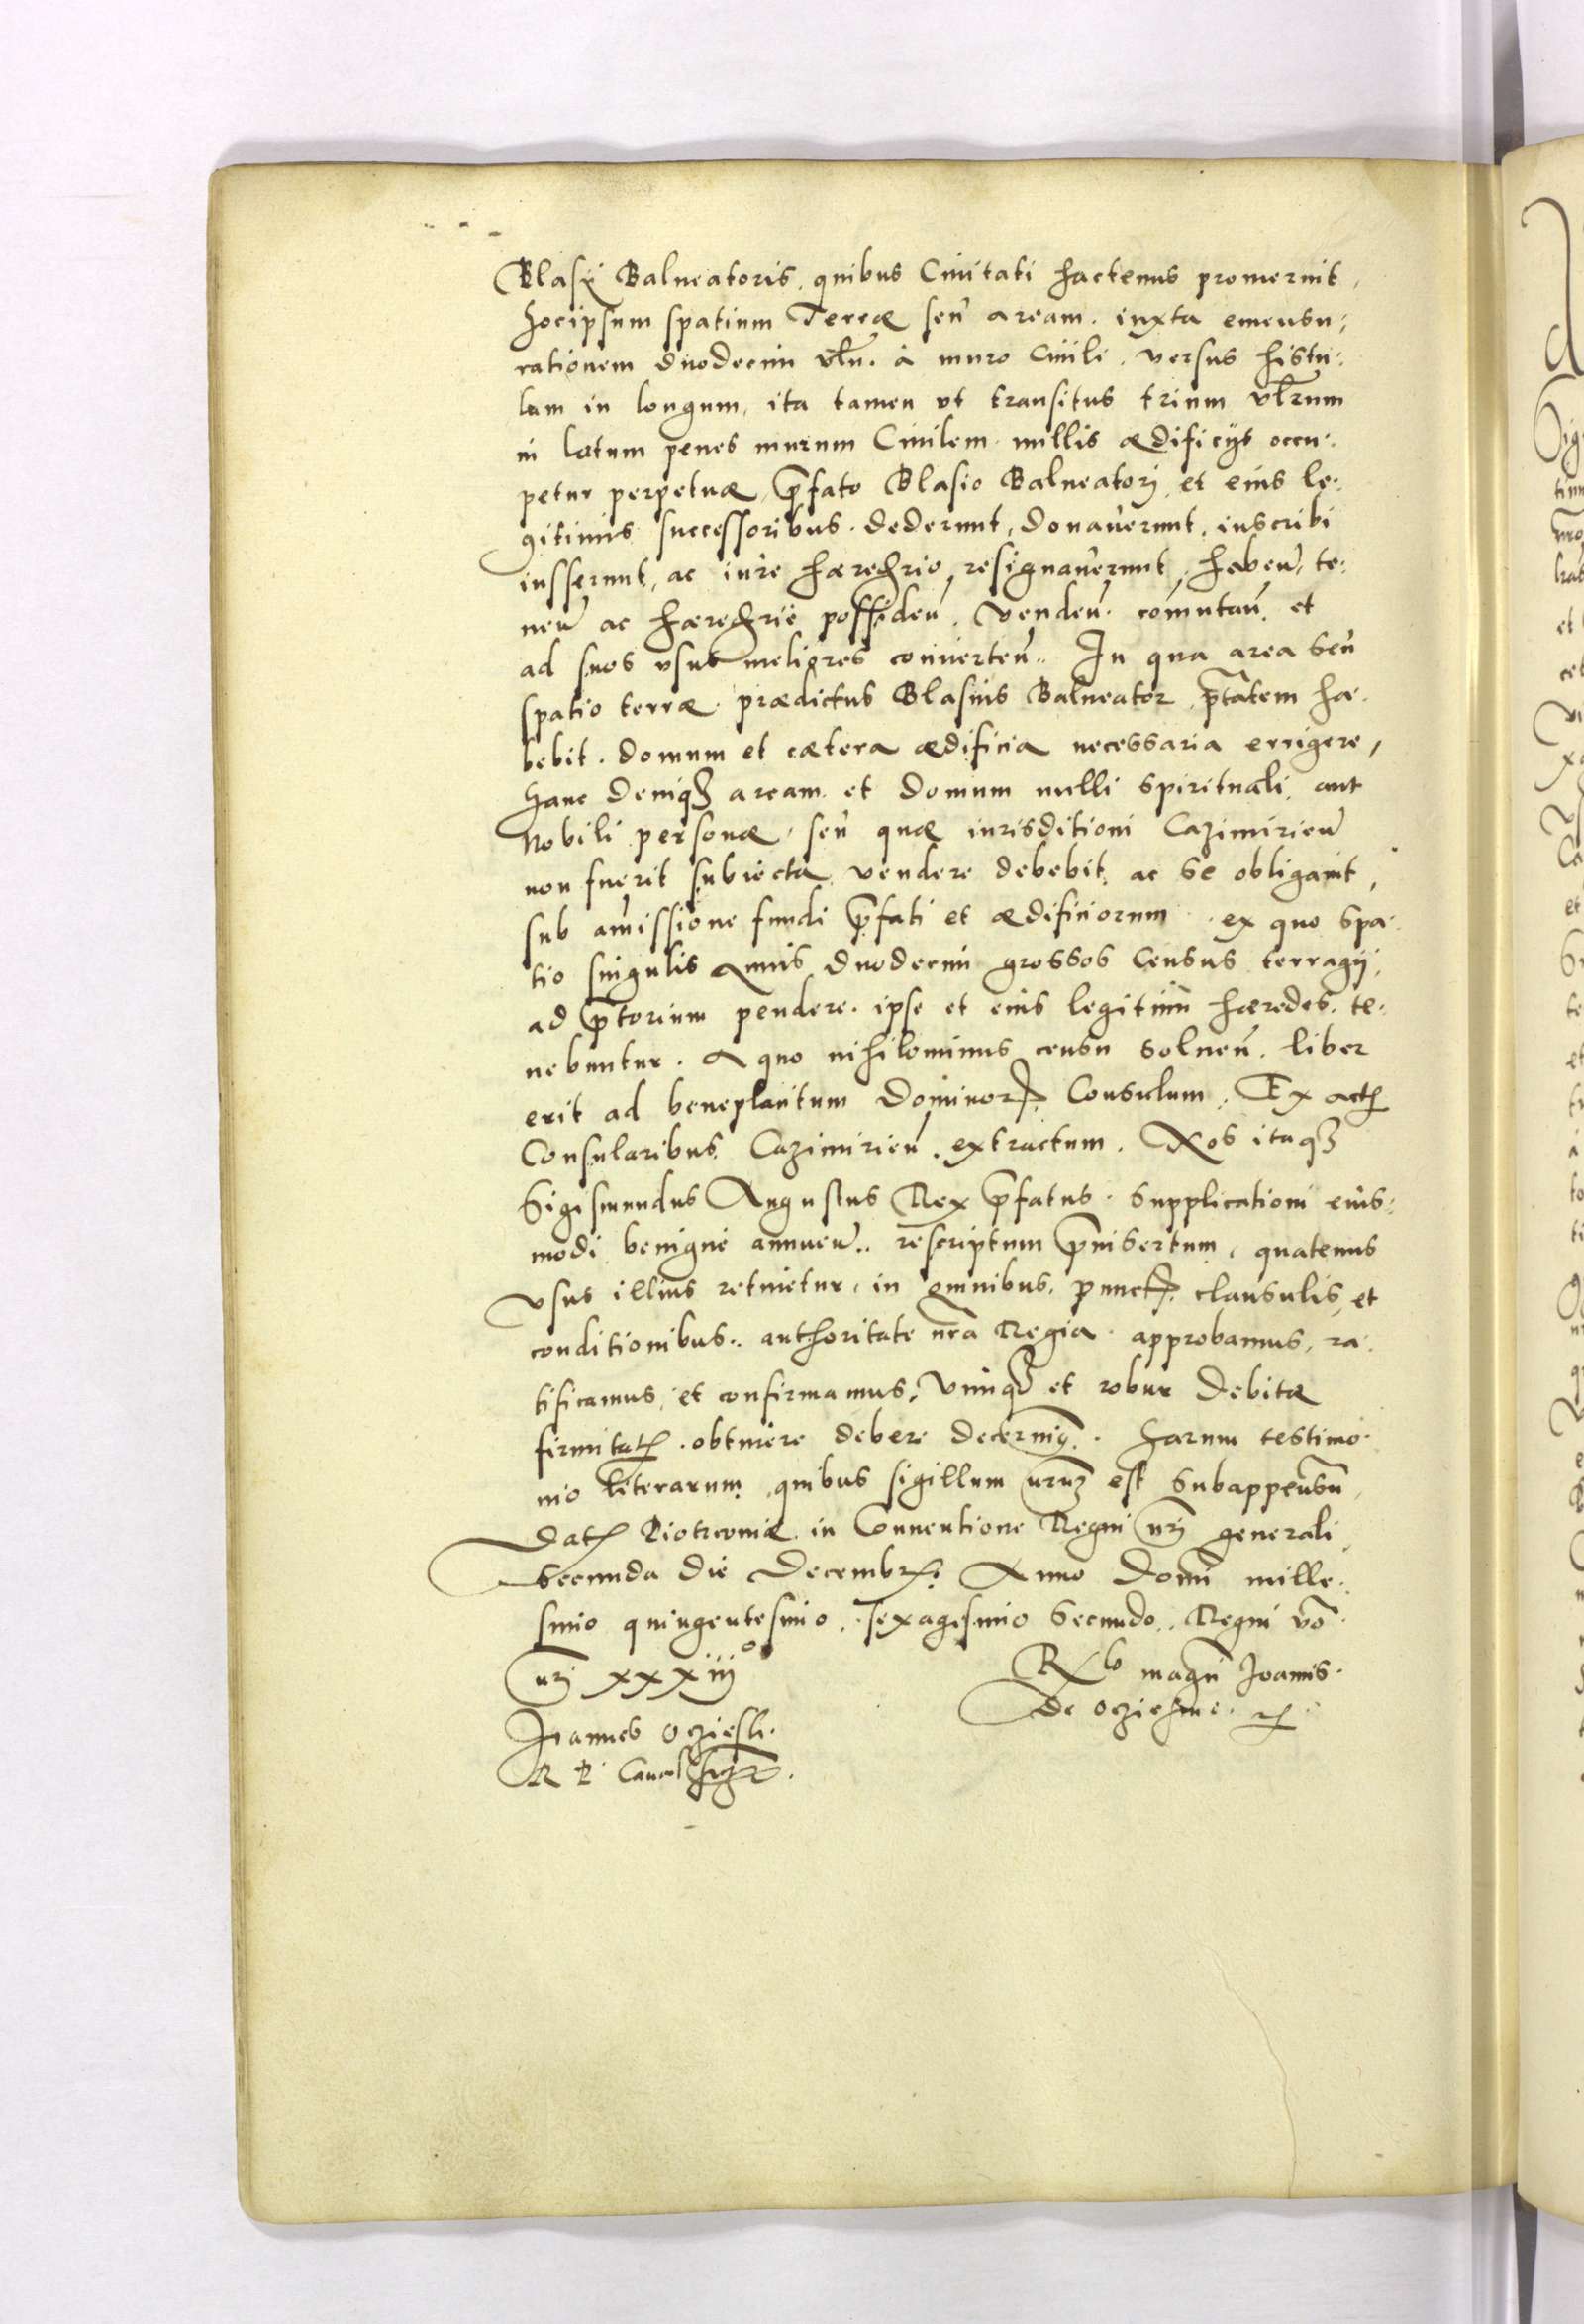 Blasij Balneatoris, quibus Ciuitati hactenus promeruit,
hocipsum spatium Terræ seu aream. iuxta emensu-
rationem duodecim vln. à muro Ciuili. versus histu-
lam in longum, ita tamen vt transitus trium vlrum
in latum penes murum Ciuilem. nullis ædificijs occu-
petur perpetuæ, p̃fato Blasio Balneatorj et eius le-
gitimis successoribus. dederunt, donauerunt, inscribi
iusserunt, ac iure hæredrio resignauerunt, habeñ, te-
neñ ac hæredrie possideñ, vendeñ. com̃utañ. et
ad suos vsus meliores conuerteñ. In qua area seu
spatio terræ. prædictus Blasius Balneator p̃tatem ha-
bebit. domum et cætera ædificia necessaria errigere,
hanc deniqȝ aream et domum nulli spirituali aut
Nobili personæ, seu quæ iurisditioni Cazimirieñ
non fuerit subiecta vendere debebit, ac se obligauit,
sub amissione fundi p̃fati et ædificiorum. ex quo spa-
tio singulis annis duodecim grossos Census terragij,
ad p̃torium pendere. ipse et eius legitimi hæredes. te-
nebuntur. A quo nihilominus censu solueñ. liber
erit ad beneplacitum Dominorꝝ Consulum. Ex actꝭ
Consularibus Cazimirieñ. extractum. Nos itaqȝ
Sigismundus Augustus Rex p̃fatus. supplicationi eius-
modi benigne annueñ. rescriptum p̃insertum, quatenus
vsus illius retinetur, in omnibus, punctꝭ. clausulis, et
conditionibus. authoritate nr̃a Regia. approbamus, ra-
tificamus, et confirmamus, vimqȝ et robur debitæ
firmitatꝭ. obtinere debere decernimꝰ. harum testimo-
nio literarum, quibus sigillum nr̃uȝ est subappensũ,
Datꝭ Piotrcouiæ in Conuentione Regni nr̃j generali
secunda die Decembrꝭ Anno Domi mille-
simo quingentesimo, sexagesimo secundo. Regni vo.
nr̃j xxxiijº
Relo magci Ioannis.
De Oczieschine. etc.
Joannes Oczieski.
R P Cancel